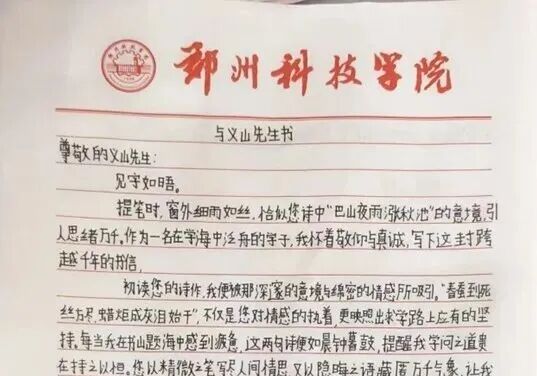 郑州科技学院
与义山先生书
尊敬的义山先生：
见字如晤。
提笔时，窗外细雨如丝，恰似您诗中“巴山夜雨涨秋池”的意境，引
人思绪万千。作为一名在学海中泛舟的学子，我怀着敬仰与真诚，写下这封跨
越千年的书信。
初读您的诗作，我便被那深邃的意境与绵密的情感所吸引。“春蚕到死
丝方尽，蜡炬成灰泪始干”，不仅是您对情感的执着，更映照出求学路上应有的坚
持。每当我在书山题海中感到疲惫，这两句诗便如晨钟暮鼓，提醒我学问之道贵
在持之以恒。您以精微之笔写尽人间情思，又以隐晦之语藏匿万千气象，让我